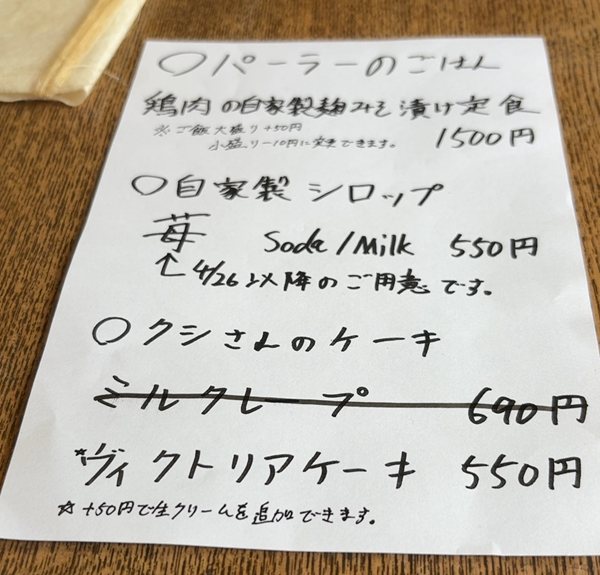 〇パーラーのごはん
鶏肉の自家製麹みそ漬け定食
※ご飯大盛り+50円
小盛りー10円に変更できます。
1500円
〇自家製シロップ
苺 Soda/Milk 550円
↑4/26以降のご用意です。
〇クシさんのケーキ
ミルクレープ 690円
☆ヴィクトリアケーキ 550円
☆+50円で生クリームを追加できます。